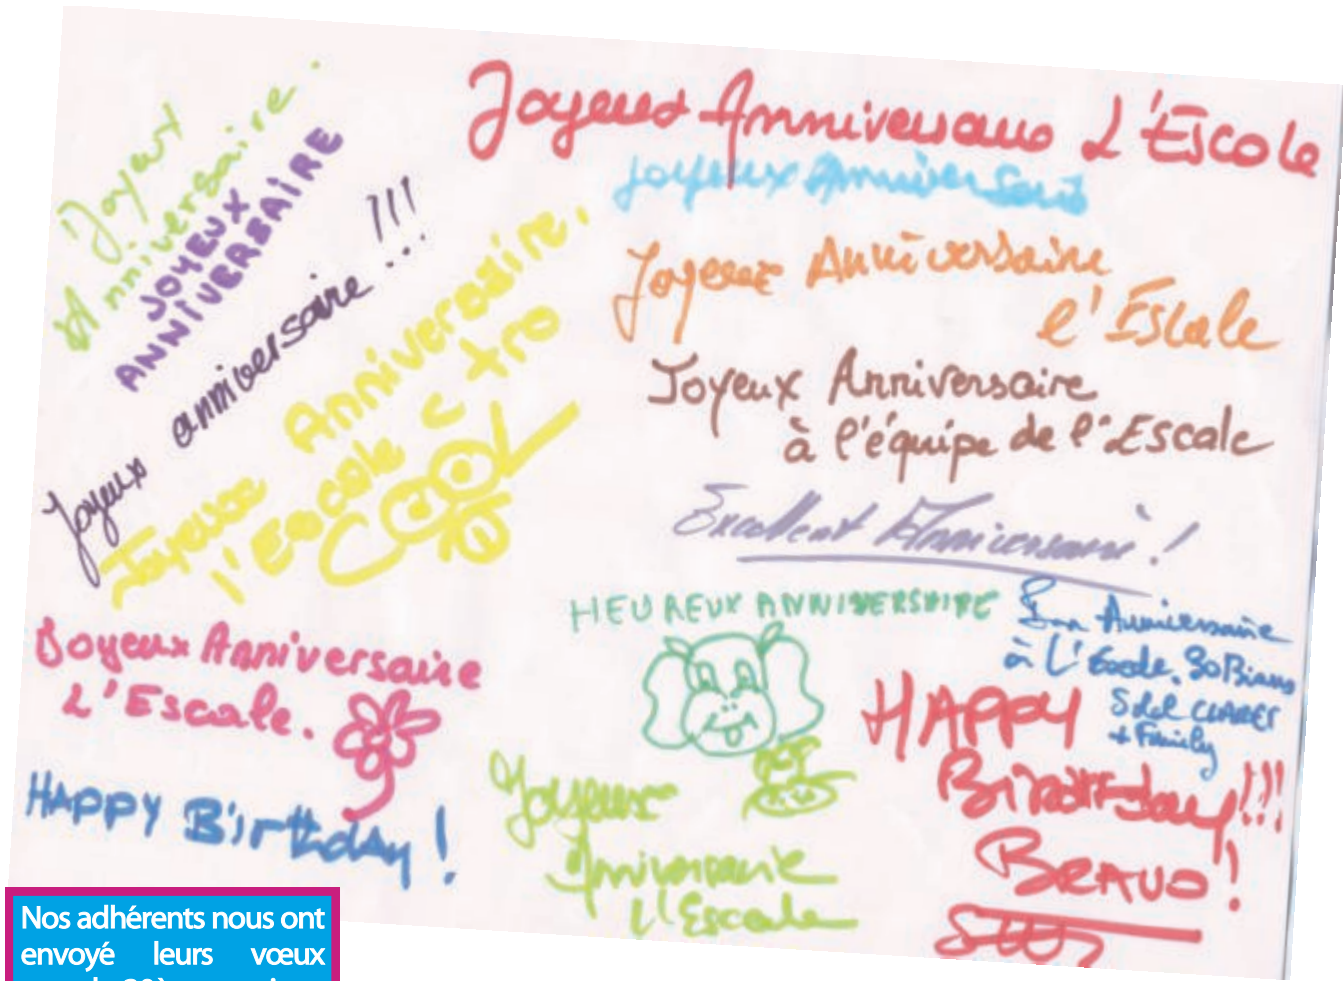 Joyeux
Anniversaire.
JOYEUX
ANNIVERSAIRE
Joyeux anniversaire !!!
Joyeux Anniversaire.
l'Escale c tro
COOL
Joyeux Anniversaire L'Escale
Joyeux Anniversaire
Joyeux Anniversaire
l'Escale
Joyeux Anniversaire
à l'équipe de l'Escale
Excellent Anniversaire !
HEUREUX ANNIVERSAIRE
Bon Anniversaire
à L'Escale.
+ Family
Joyeux Anniversaire
L'Escale.
HAPPY Birthday !
Joyeux
Anniversaire
L'Escale
HAPPY
BIRTHday !!!
BRAVO !
Nos adhérents nous ont
envoyé leurs vœux